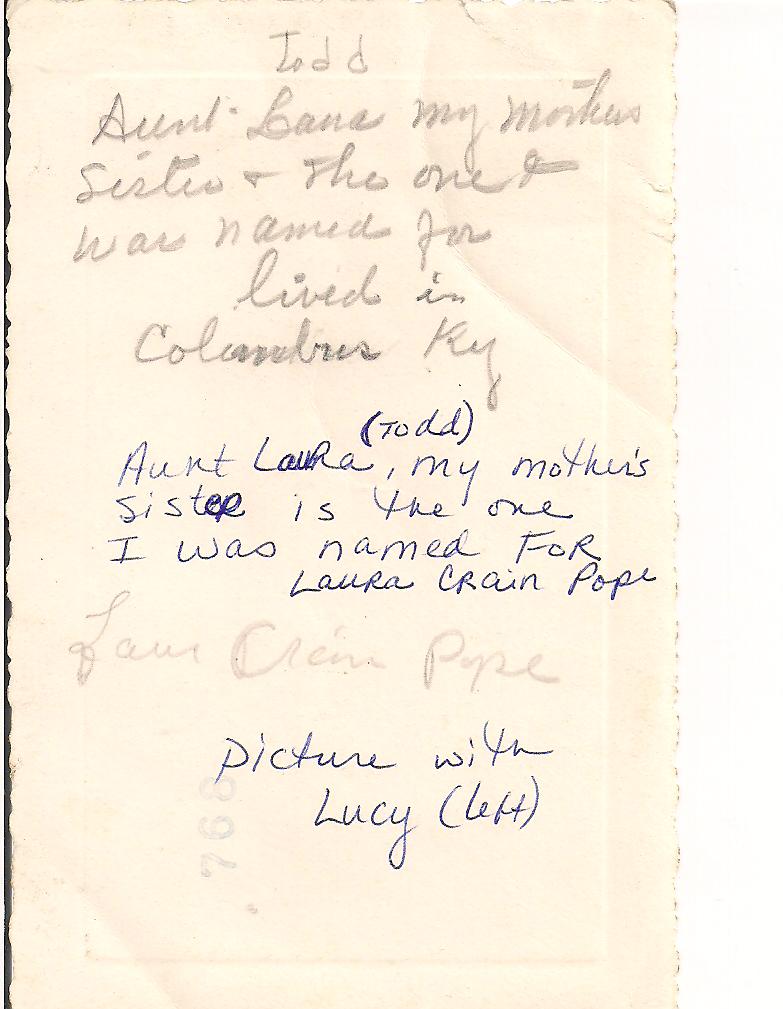 Todd
Aunt Laura my Mothers
Sister + the one I
was named for
lived in
Columbus Ky
(Todd)
Aunt Laura, my mother's
sister is the one
I was named for
Laura Crain Pope
Laura Crain Pope
Picture with
Lucy (left)
768